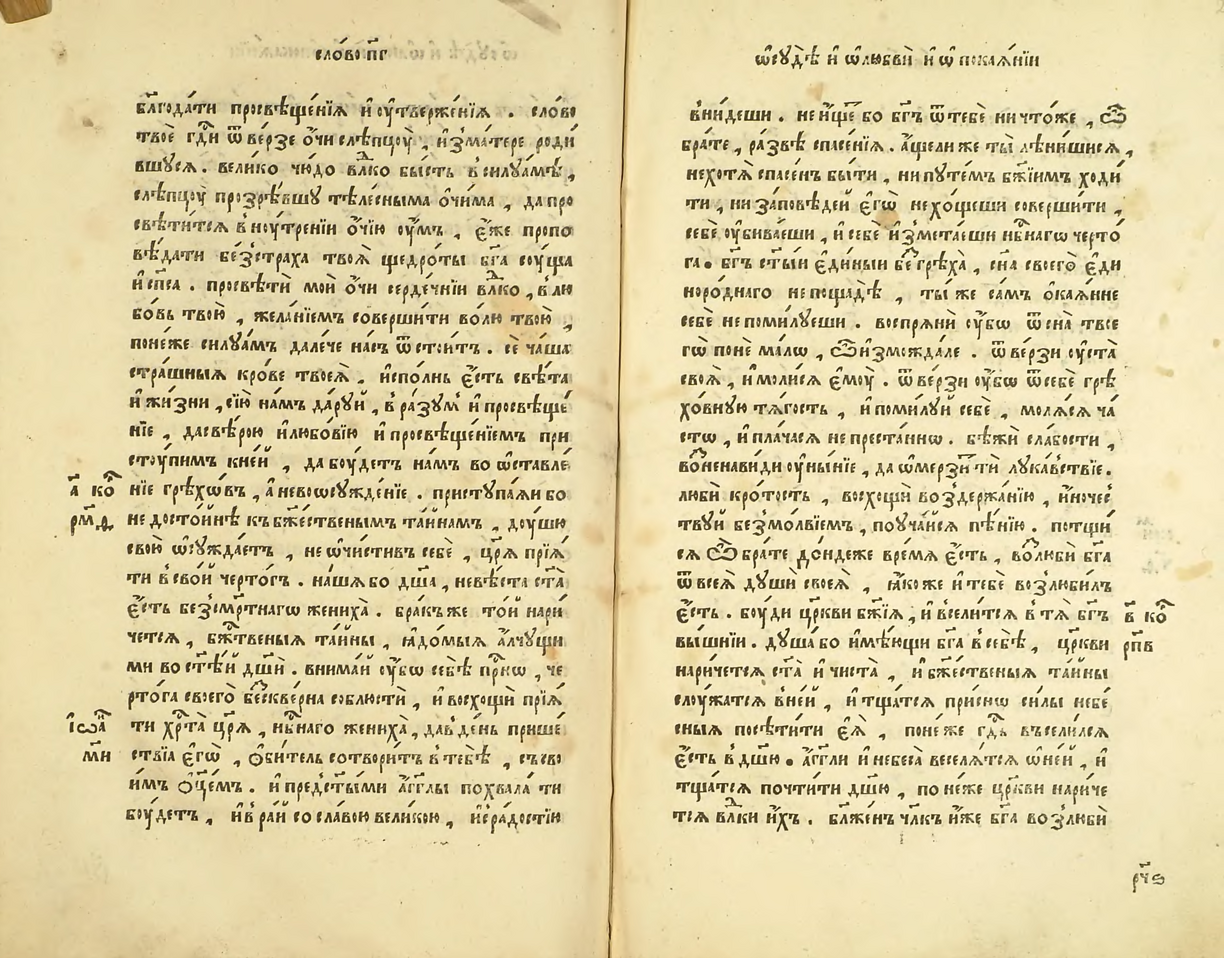 сло́во п҃г
блⷭ҇года́ти просвѣще́нїѧ и҆ ᲂу҆тверже́нїѧ . сло́во
твоѐ гдⷭ҇и ѿве́рзе о҆́чи слѣпцоу̀ , и҆зма́тере роди́
вшꙋсѧ . вели́ко чю́до влⷣко бы́сть в си́лꙋа́мѣ ,
слѣпцоу̀ прозрѣ́вшꙋ тѣле́сныма о҆чи́ма , да про
свѣти́тсѧ в ноу́тренїи о҆́чїю ᲂу҆́мъ , є҆́же пропо
вѣ́дати безстра́ха твоѧ̀ щедро́ты бг҃а соу́ща
и҆ сп҃са . просвѣти́ мои о҆́чи серде́чнїи влⷣко , в лю
бо́вь твою̀ , жела́нїемъ соверши́ти во́лю твою̀ ,
поне́же силꙋа́мъ дале́че на́съ ѿстои́тъ . се́ ча́ша
стра́шныѧ кро́ве твоеѧ̀ . и҆спо́лнь є҆́сть свѣ́та
и҆ жи́зни , сїю̀ на́мъ да́рꙋй , в ра́зꙋмъ и҆ просвѣще́
нїе , дасвѣ́рою и҆любо́вїю и҆ просвѣще́нїемъ при
стоу́пимъ кне́й , да боу́детъ на́мъ во ѡ҆ставле́
а҃ коⷬ҇ нїе грѣхо́въ , а҆ невоѡ҆сꙋжде́нїе . пристꙋпа́ѧи бо
рм҃д не досто́йнѣ къ бж҃е́ственымъ та́йнамъ , доу́шю
свою̀ ѡ҆сꙋжда́етъ , не ѡ҆чи́стивъ себѐ , цр҃ѧ̀ прїѧ́
ти в сво́й черто́гъ . на́ша бо дш҃а̀ , невѣ́ста ст҃а̀
є҆́сть безсм҃ртнагѡ жениха̀ . бра́къ же то́й нари
че́тсѧ , бжⷭ҇твеныѧ та́йны , ꙗ҆до́мыѧ а҆́лчꙋщи
ми во ст҃ѣ́й дш҃и . внима́й ᲂу҆́бѡ себѣ̀ прⷭ҇нѡ , че
рто́га своего̀ бескве́рна соблюстѝ , и҆ восхощѝ прїѧ́
і҆ѡа҃ ти хрⷭ҇та̀ цр҃ѧ̀ , нбⷭ҇наго жениха̀ , дав де́нь прише́
м҃и ствїѧ є҆гѡ̀ , ѻ҆би́тель сотвори́тъ в тебѣ̀ , съ сво
и́мъ ѻ҆ц҃е́мъ . и҆ предст҃ы́ми а҆́гг҃лы похвала̀ ти
боу́детъ , и҆ в ра́й со сла́вою вели́кою , и҆ с ра́достїю
ѡ҆ сꙋдѣ̀ и҆ ѡ҆ любвѝ и҆ ѡ҆ покаѧ́нїи
вни́деши . не и҆́щеⷮ бо бг҃ъ ѿ тебѐ ничто́же , ѽ
бра́те , ра́звѣ спасе́нїѧ . а҆́щели же ты̀ лѣни́шисѧ ,
не хотѧ̀ спасе́нъ бы́ти , ни пꙋте́мъ бж҃їимъ ходи́
ти , ни за́повѣдей є҆гѡ̀ не хо́щеши соверши́ти ,
себѐ ᲂу҆бива́еши , и҆ себѐ и҆змета́еши нбⷭ҇нагѡ черто́
га . бг҃ъ ст҃ы́и є҆ди́ныи беⷥгрѣха̀ , сн҃а своего̀ є҆ди
норо́днаго не пощадѣ̀ , ты́ же са́мъ ѻ҆каѧ́нне
себѐ не поми́лꙋеши . воспрѧнѝ ᲂу҆́бѡ ѿ сна̀ твое
гѡ̀ понѐ ма́лѡ , ѽ и҆зможда́ле . ѿве́рзи ᲂу҆ста̀
своѧ̀ , и҆ моли́сѧ є҆моу̀ . ѿве́рзи ᲂу҆́бѡ ѿ себѐ грѣ
хо́внꙋю тѧ́гость , и҆ поми́лꙋй себѐ , молѧ́сѧ ча́
стѡ , и҆ пла́часѧ не преста́ннѡ . бѣжѝ сла́бости ,
воⷥненави́ди ᲂу҆ны́нїе , да ѡ҆мерзи́тъ тѝ лꙋка́вствїе .
любѝ кро́тость , восхощѝ воздержа́нїю , и҆ночес
твꙋй безмо́лвїемъ , поуча́йсѧ пѣ́нїю . потщи́
сѧ ѽ бра́те до́ндеже вре́мѧ є҆́сть , воⷥлюбѝ бг҃а
ѿ всеѧ̀ дꙋшѝ своеѧ̀ , ꙗ҆́коже и҆ тебѐ возлюби́лъ
є҆́сть . боу́ди цр҃кви бж҃їѧ , и҆ всели́тсѧ в тѧ̀ бг҃ъ в҃ коⷬ҇
вы́шнїи . дꙋша̀ бо и҆мѣ́ющи бг҃а в себѣ̀ , цр҃кви рп҃в
нарече́тсѧ ст҃а̀ и҆ чиста̀ , и҆ бж҃е́ственыѧ та́йны
слоу́жатсѧ в не́й , и҆ тща́тсѧ при́снѡ си́лы небе́
сныѧ посѣти́ти є҆ѧ̀ , поне́же гдⷭ҇ь въсели́лсѧ
є҆́сть в дш҃ю . а҆́гг҃ли и҆ небеса̀ веселѧ́тсѧ ѡ҆ не́й , и҆
тща́тсѧ почти́ти дш҃ю , поне́же цр҃кви нариче́
тсѧ влⷣки и҆́хъ . блаже́нъ чл҃къ и҆́же бг҃а возлюбѝ
рч҃ѕ